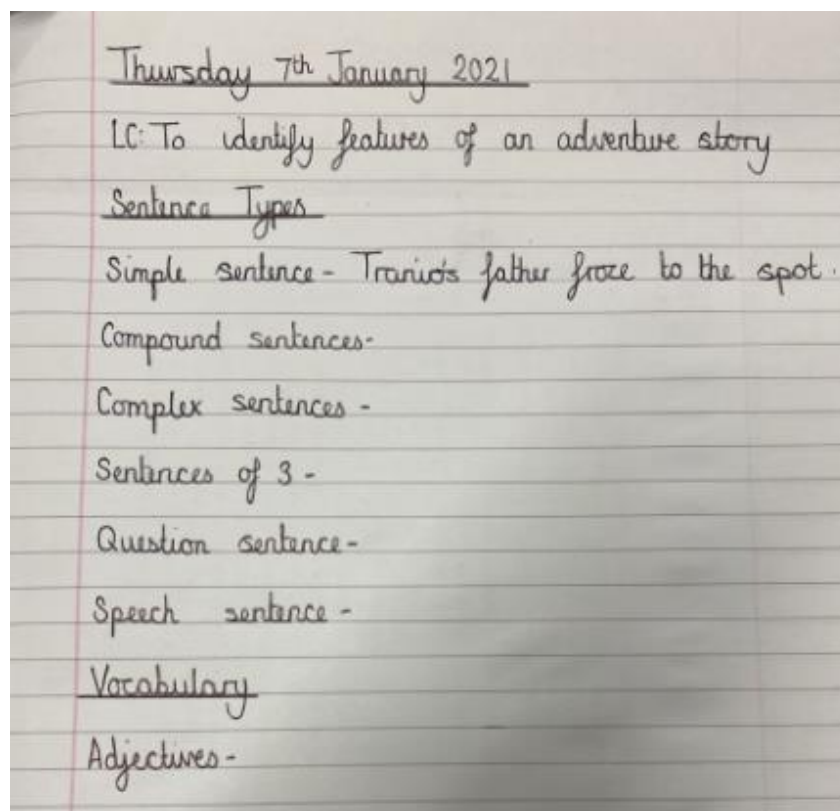 Thursday 7th January 2021
LC: To identify features of an adventure story
Sentence Types
Simple sentence - Tranio's father froze to the spot.
Compound sentences-
Complex sentences -
Sentences of 3 -
Question sentence -
Speech sentence -
Vocabulary
Adjectives -